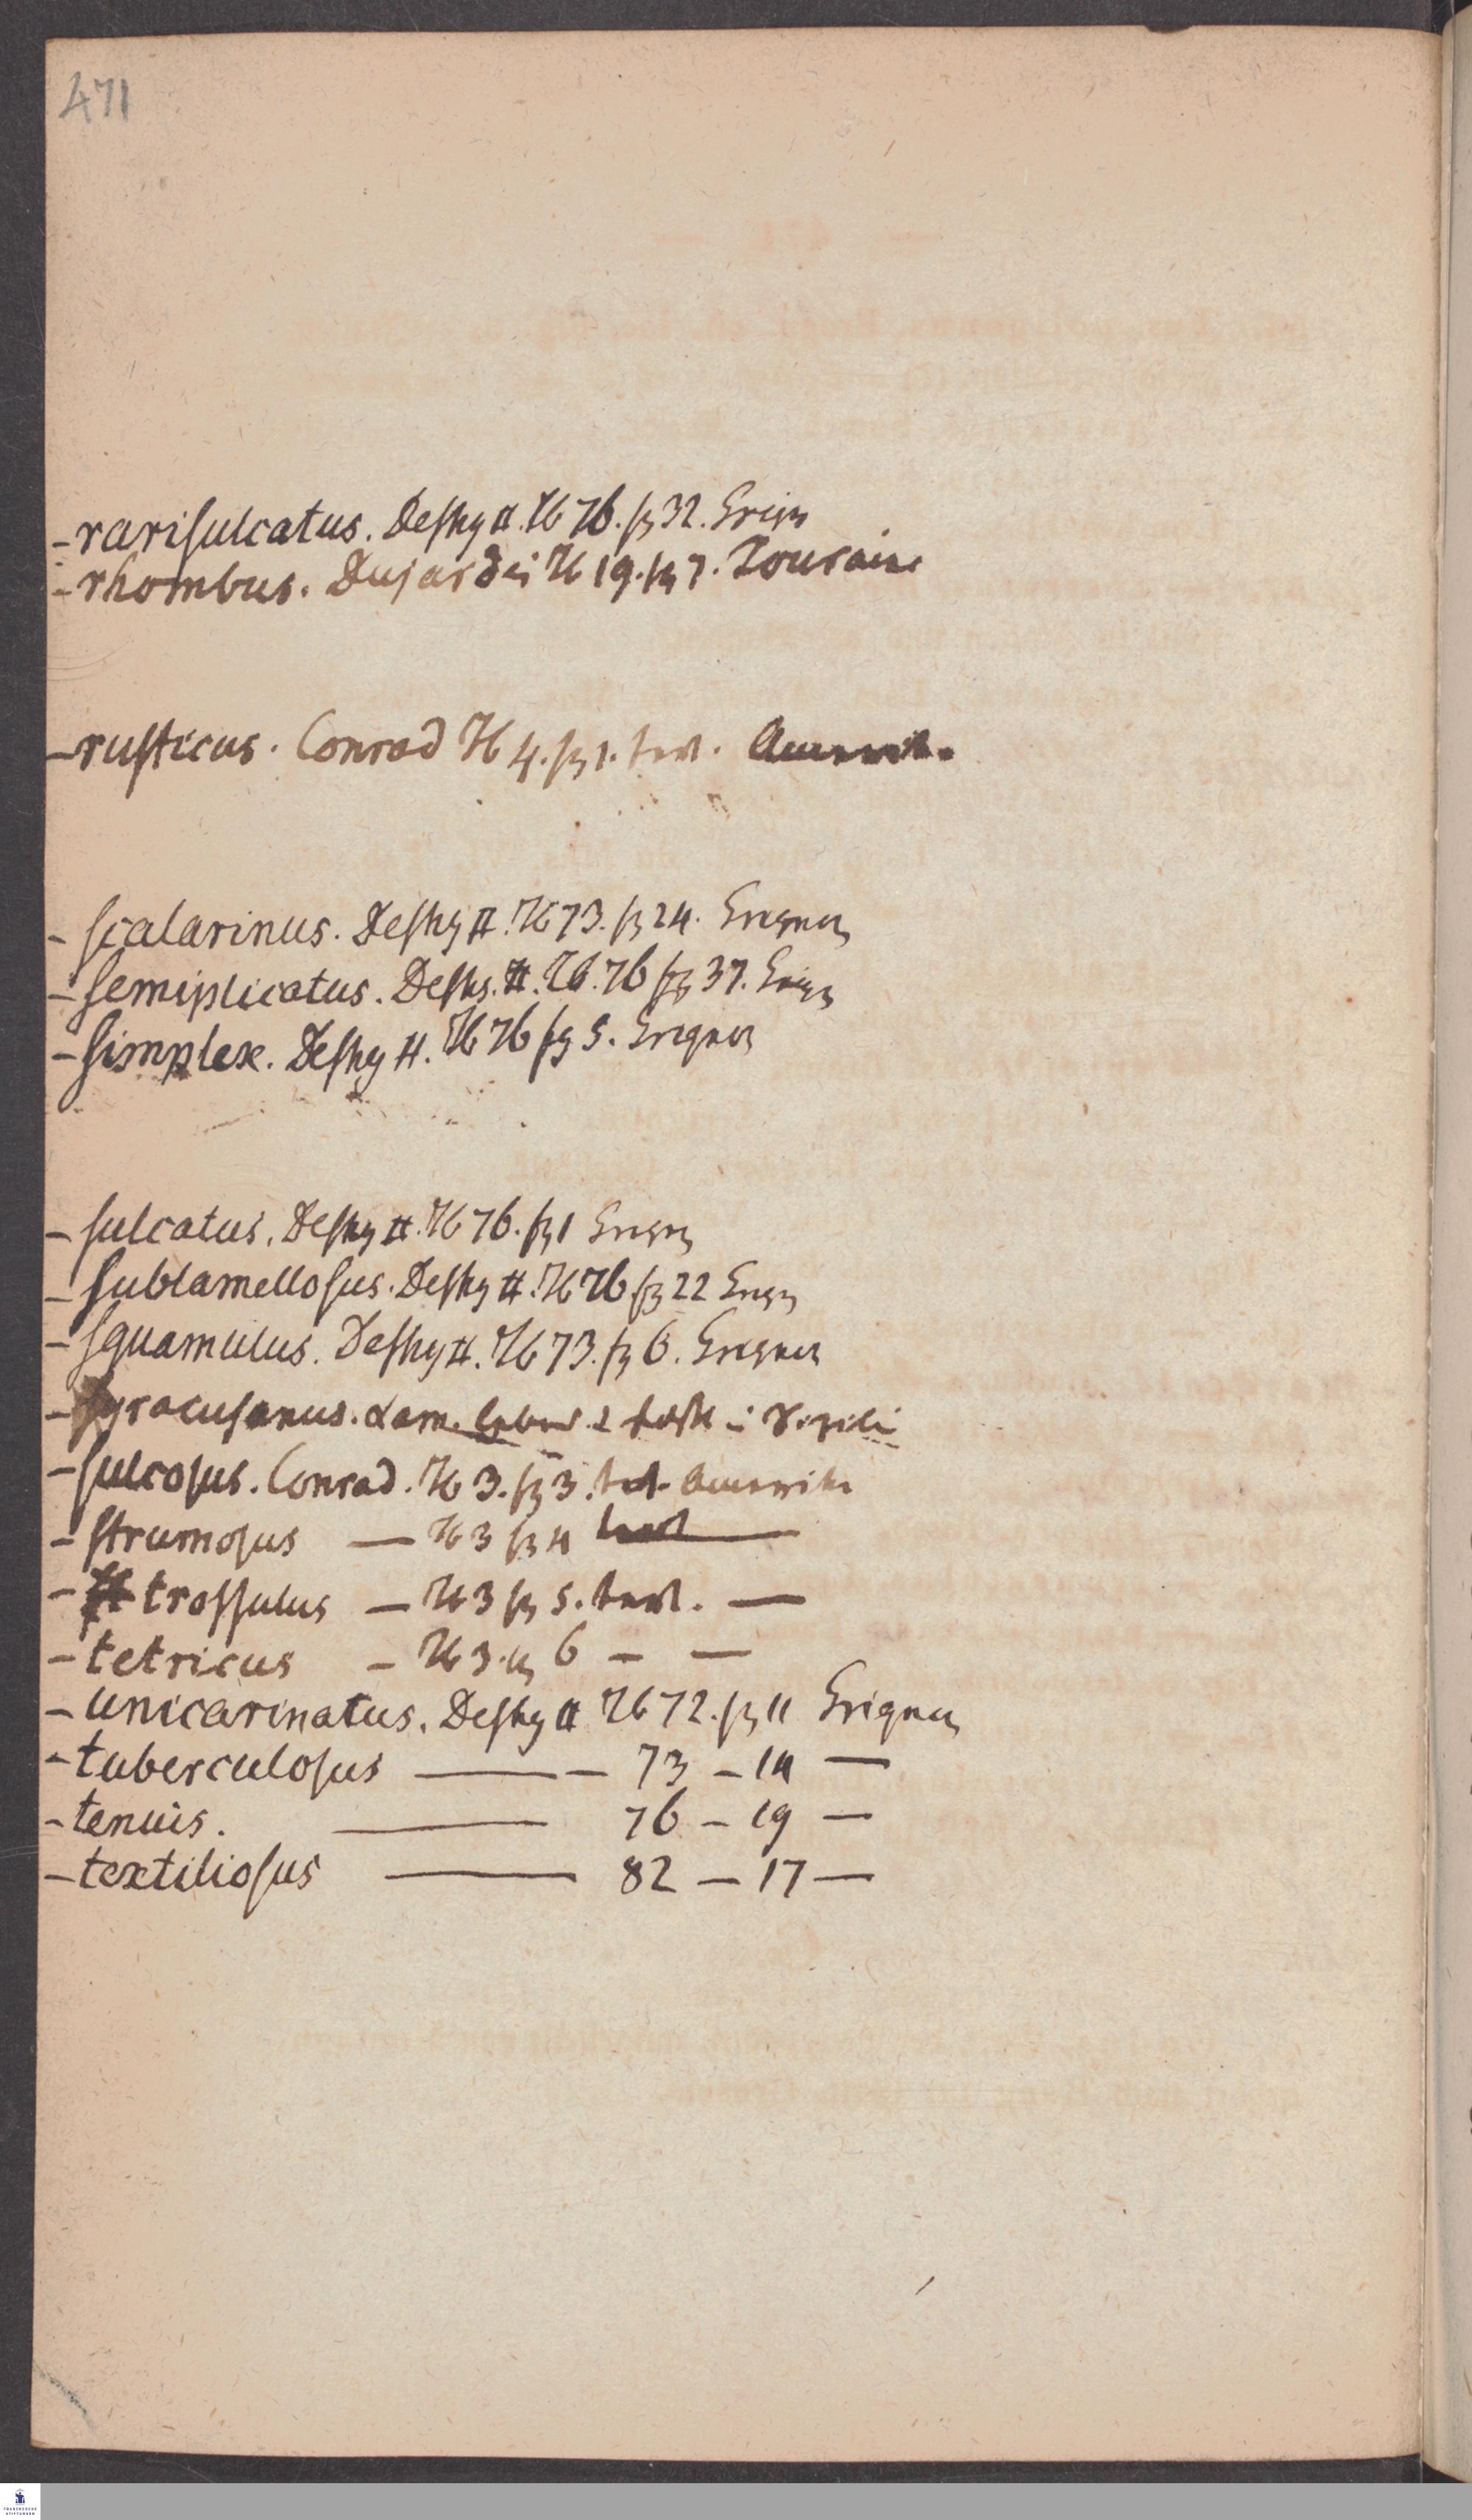 471
- rariſulcatus. Deſhy II. Tb 76. fg 32. Grign
- rhombus. Dujardin Tb 19. fg 7. Touraine
- ruſticus. Conrad Tb 4. fg 1. tert. Amerik.
- ſcalarinus. Deſhy II. Tb 73. fg 24. Grignon
- ſemiplicatus. Deſhs. II. Tb. 76 fg 37. Grign
- ſimplex. Deſhy II. Tb 76 fg 5. Grignon
- ſulcatus. Deſhy II. Tb 76. fg 1 Grign
- ſublamelloſus. Deſhy II. Tb 76 fg 22 Grign
- ſquamulus. Deſhy II. Tb 73. fg 6. Grignon
- ſyracuſanus. Lam.
- ſulcoſus. Conrad. Tb 3. fg 3. tert. Amerika
- ſtrumoſus — Tb 3 fg 4 tert —
- troſſulus — Tb 3 fg 5. tert. —
- tetricus - Tb 3. fg 6 - —
- unicarinatus. Deſhy II Tb 72. fg 11 Grignon
- tuberculoſus —— 73 - 14 —
- tenuis. —— 76 - 19 —
- textilioſus —— 82 - 17 —
FRANCKESCHE
STIFTUNGEN